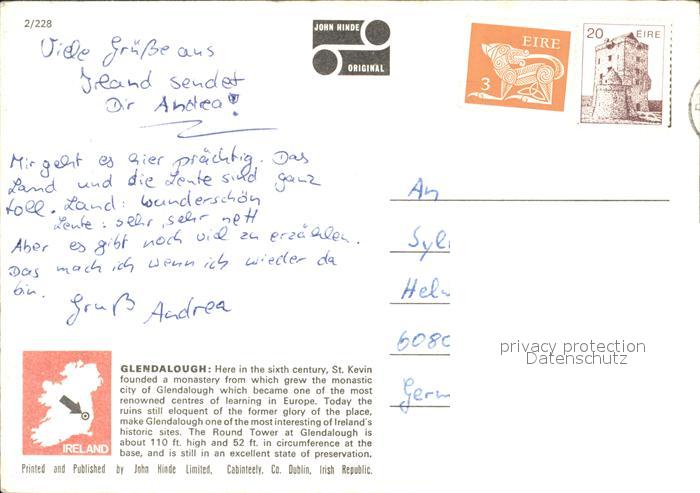 2/228
JOHN HINDE
ORIGINAL
EIRE
3
20 EIRE
Viele Grüße aus
Irland sendet
Dir Andrea!
Mir geht es hier prächtig. Das
Land und die Leute sind ganz
toll. Land: wunderschön
Leute: sehr, sehr nett
Aber es gibt noch viel zu erzählen.
Das mach ich wenn ich wieder da
bin.
Gruß Andrea
An
Syl
Hel
6080
Germ
privacy protection
Datenschutz
IRELAND
GLENDALOUGH: Here in the sixth century, St. Kevin
founded a monastery from which grew the monastic
city of Glendalough which became one of the most
renowned centres of learning in Europe. Today the
ruins still eloquent of the former glory of the place,
make Glendalough one of the most interesting of Ireland's
historic sites. The Round Tower at Glendalough is
about 110 ft. high and 52 ft. in circumference at the
base, and is still in an excellent state of preservation.
Printed and Published by John Hinde Limited, Cabinteely, Co. Dublin, Irish Republic.